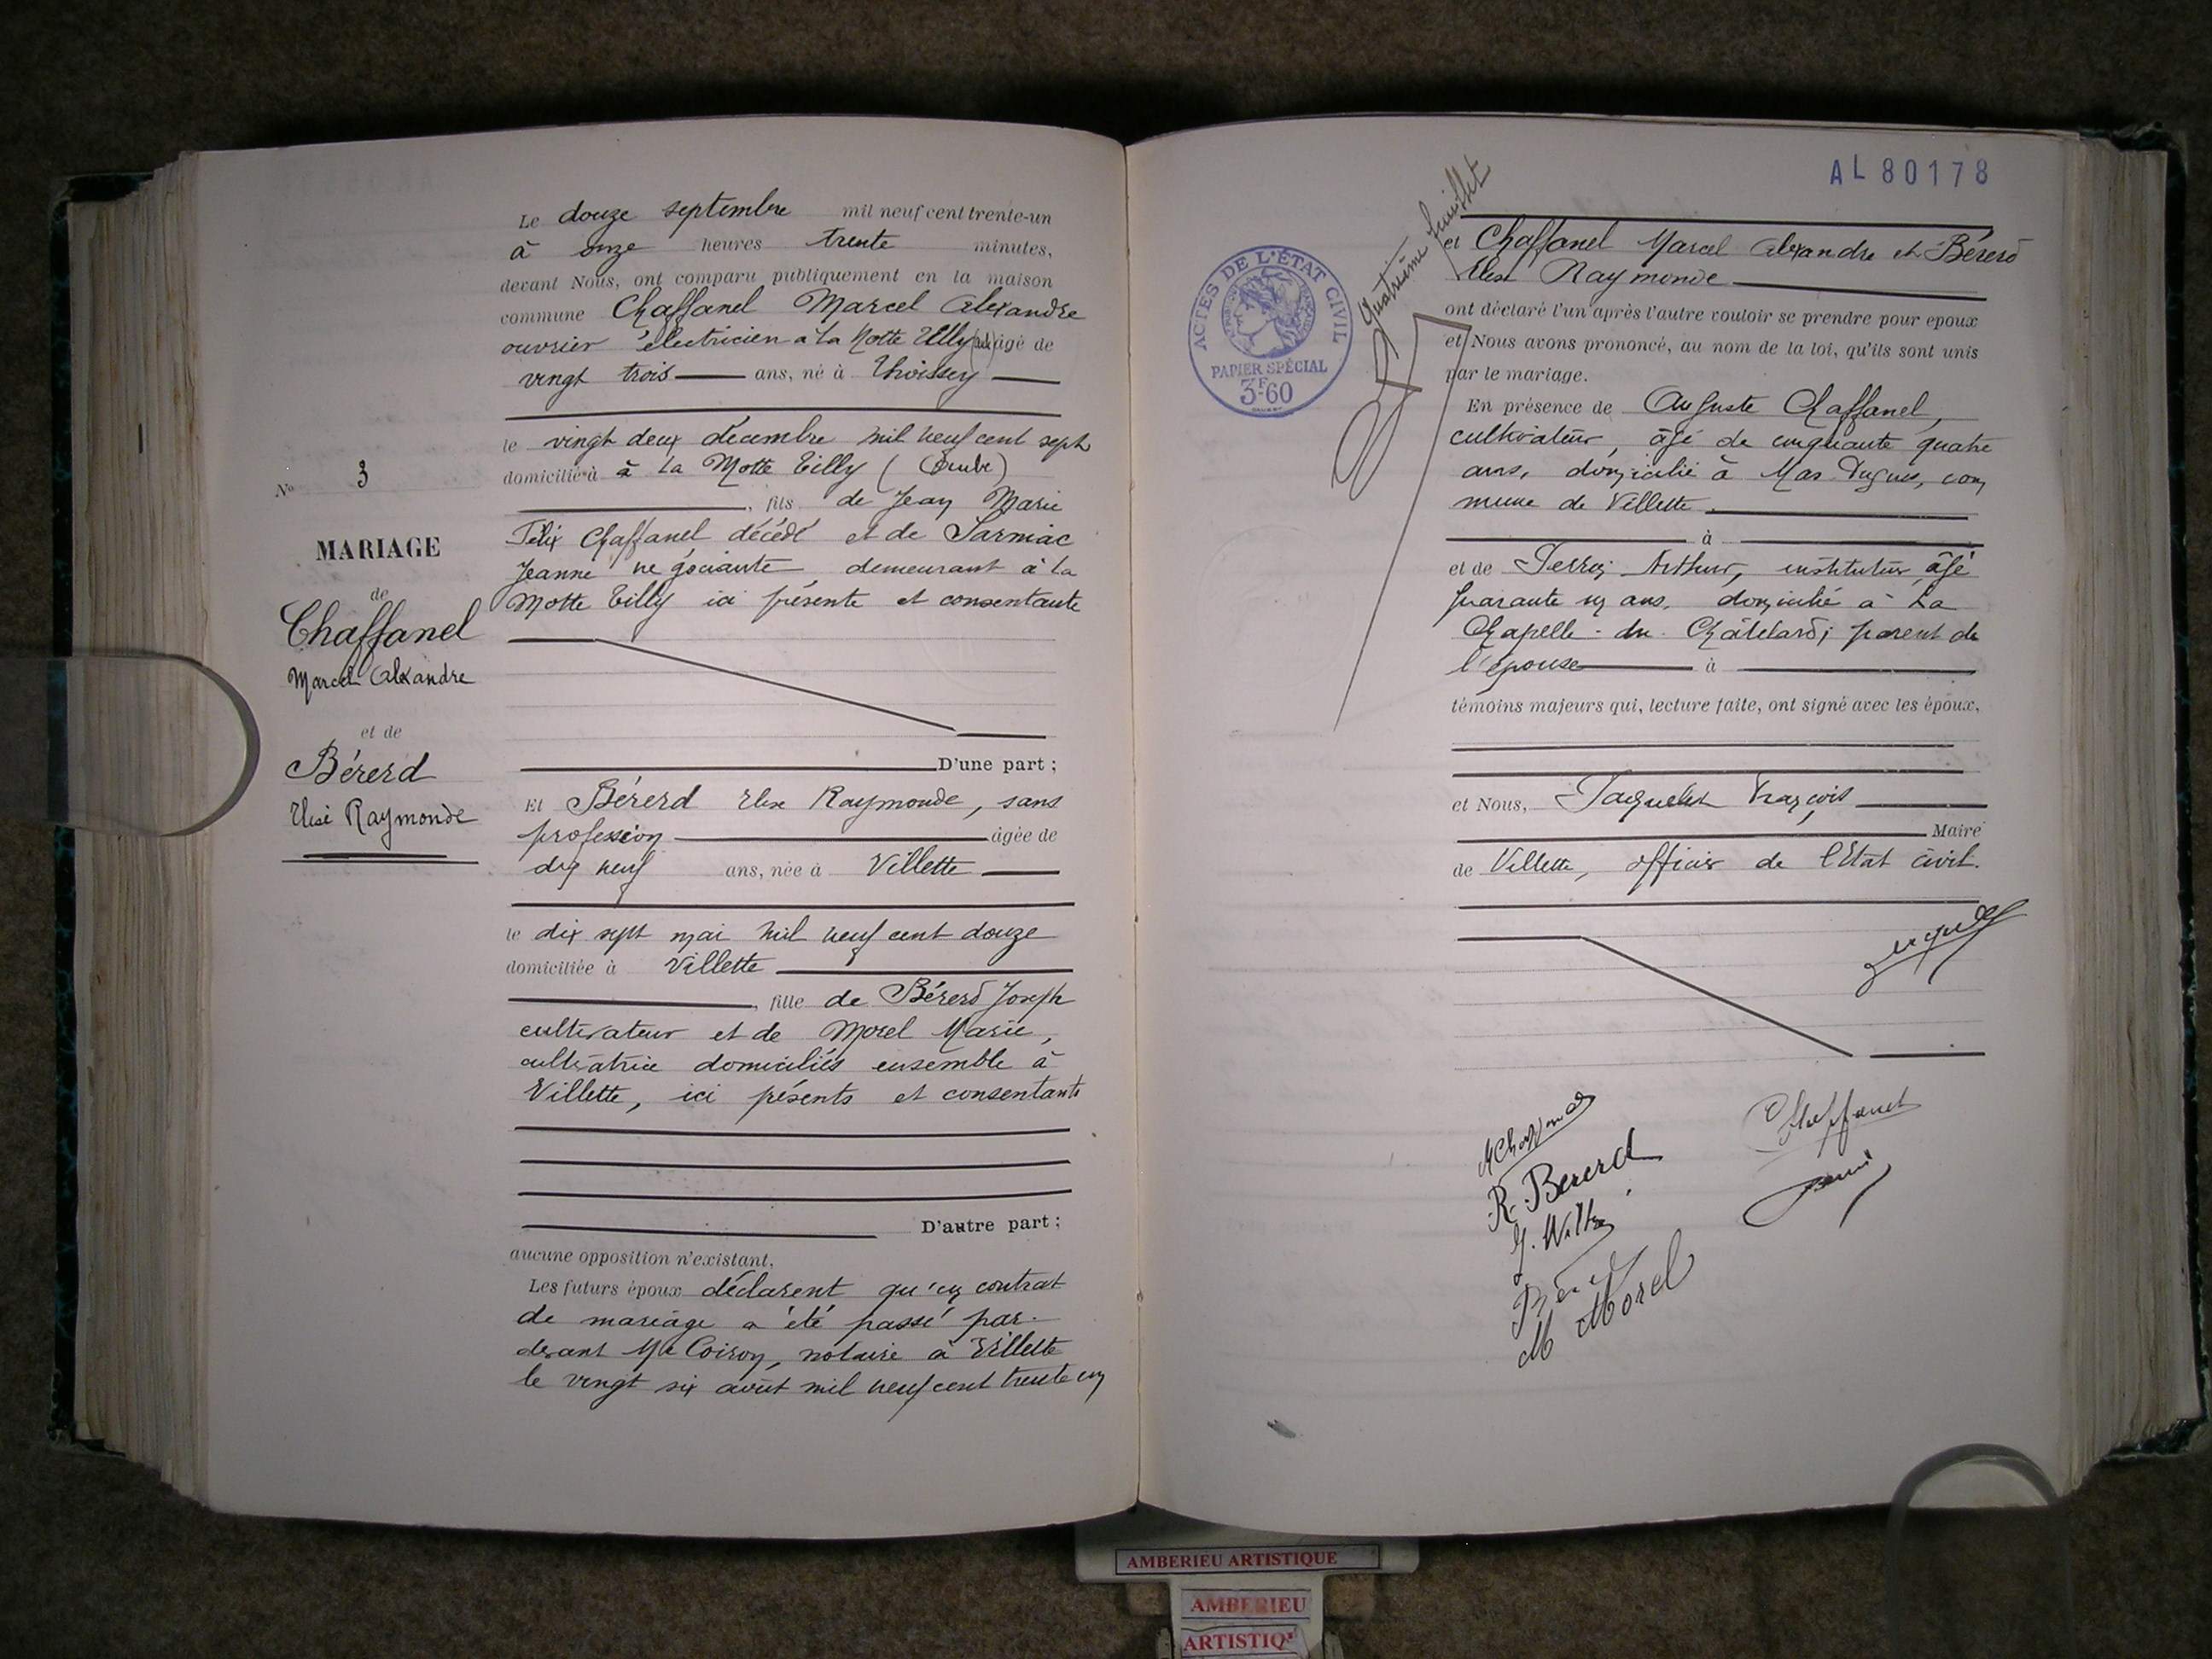 Le douze septembre mil neuf cent trente-un
à onze heures trente minutes,
devant Nous, ont comparu publiquement en la maison
commune Chaffanel Marcel Alexandre
ouvrier électricien à la Motte Tilly (Aube) âgé de
vingt trois ans, né à Thoissey
le vingt deux décembre mil neuf cent sept
domicilié à à La Motte Tilly (Aube)
, fils de Jean Marie
Félix Chaffanel décédé et de Jarniac
Jeanne négociante, demeurant à la
Motte Tilly ici présente et consentante
D'une part ;
Et Bérerd Elise Raymonde, sans
profession âgée de
dix neuf ans, née à Villette
le dix sept mai mil neuf cent douze
domiciliée à Villette
, fille de Bérerd Joseph
cultivateur et de Morel Marie,
cultivatrice domiciliés ensemble à
Villette, ici présents et consentants
D'autre part ;
aucune opposition n'existant,
Les futurs époux déclarent qu'un contrat
de mariage a été passé par-
devant Me Coiron, notaire à Villette
le vingt six août mil neuf cent trente un
No 3
MARIAGE
de
Chaffanel
Marcel Alexandre
et de
Bérerd
Elise Raymonde
AL80178
Quatrième feuillet
ACTES DE L'ÉTAT CIVIL
PAPIER SPÉCIAL
3F60
et Chaffanel Marcel Alexandre et Bérerd
Elise Raymonde
ont déclaré l'un après l'autre vouloir se prendre pour époux
et Nous avons prononcé, au nom de la loi, qu'ils sont unis
par le mariage.
En présence de Auguste Chaffanel,
cultivateur, âgé de cinquante quatre
ans, domicilié à Mas Dugues, com
mune de Villette
à
et de Arthur, instituteur âgé
quarante un ans, domicilié à La
Chapelle-du-Châtelard, parent de
l'épouse à
témoins majeurs qui, lecture faite, ont signé avec les époux,
et Nous, Jaquelet François
Maire
de Villette, officier de l'Etat civil.
R. Bererd
Chaffanel
M Morel
AMBERIEU ARTISTIQUE
AMBERIEU
ARTISTIQ